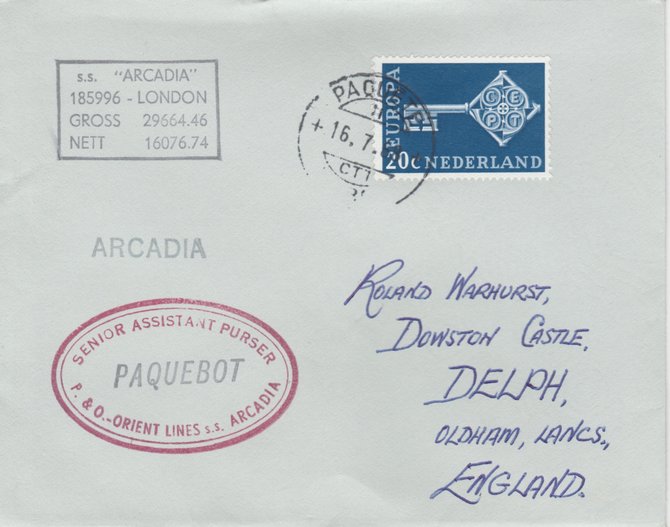 s.s. "ARCADIA"
185996 - LONDON
GROSS 29664.46
NETT 16076.74
16. 7.
CTT
EUROPA
CEPT
20c NEDERLAND
ARCADIA
SENIOR ASSISTANT PURSER
PAQUEBOT
P. & O.-ORIENT LINES s.s. ARCADIA
ROLAND WARHURST,
DOWSTON CASTLE,
DELPH,
OLDHAM, LANCS.,
ENGLAND.